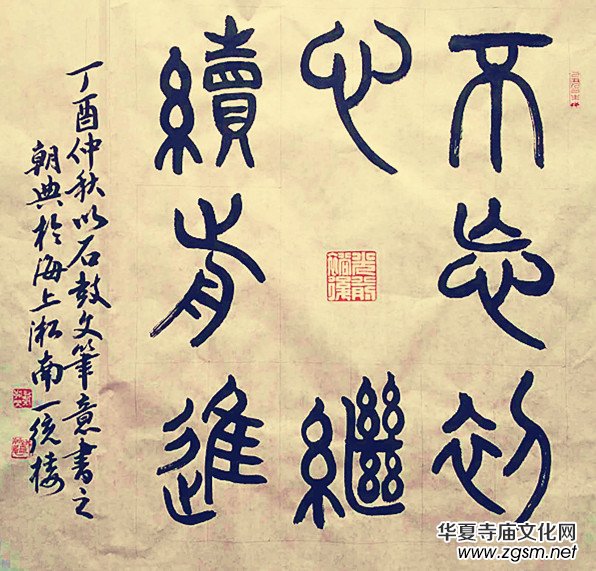 不忘初
心繼
續前進
丁酉仲秋以石鼓文筆意書之
朝典於海上淞南一統樓
华夏寺庙文化网
www.zgsm.net